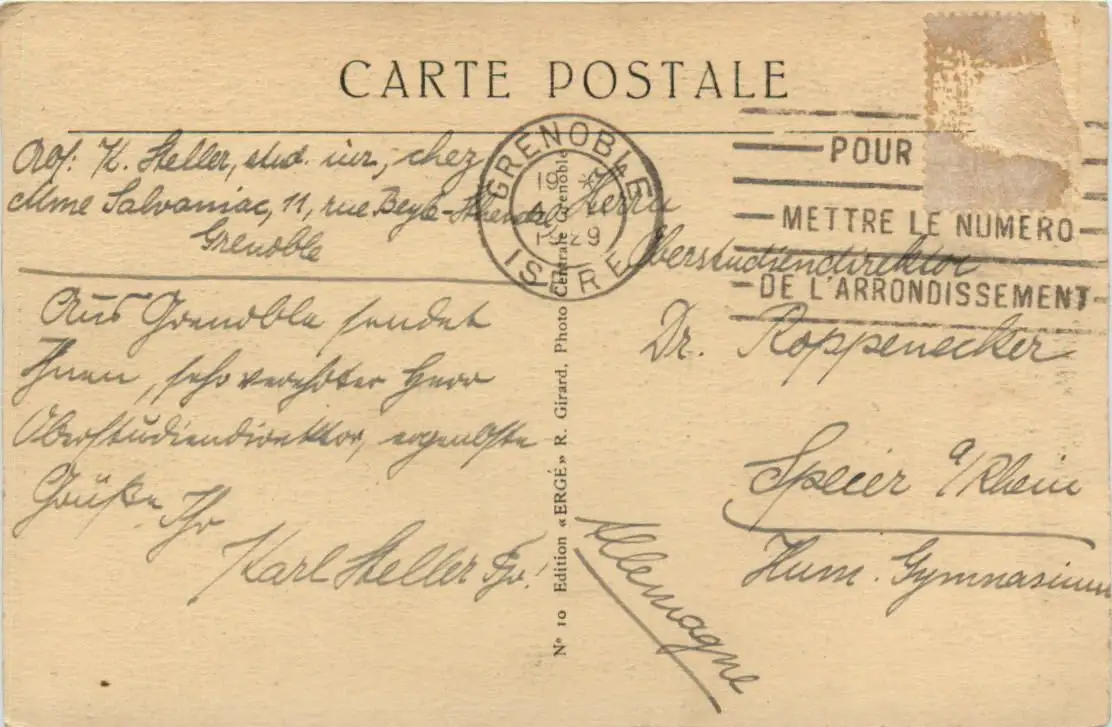 CARTE POSTALE
Prof. K. Steller, stud. iur., chez
Mme Salvaniac, 11, rue Beyle-Stendal
Grenoble
Aus Grenoble sendet
Ihnen, sehr verehrter Herr
Oberstudiendirektor, ergebenste
Grüße Ihr
Karl Steller
GRENOBLE
19
1929
ISERE
POUR
METTRE LE NUMERO
DE L'ARRONDISSEMENT
Herrn
Oberstudiendirektor
Dr. Roppenecker
Speier a/Rhein
Hum. Gymnasium
Allemagne
Nº 10 Edition «ERGÉ» R. Girard, Photo Centrale Grenoble